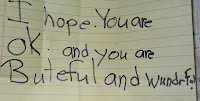 I hope. You are
OK. and you are
Buteful and wundrful